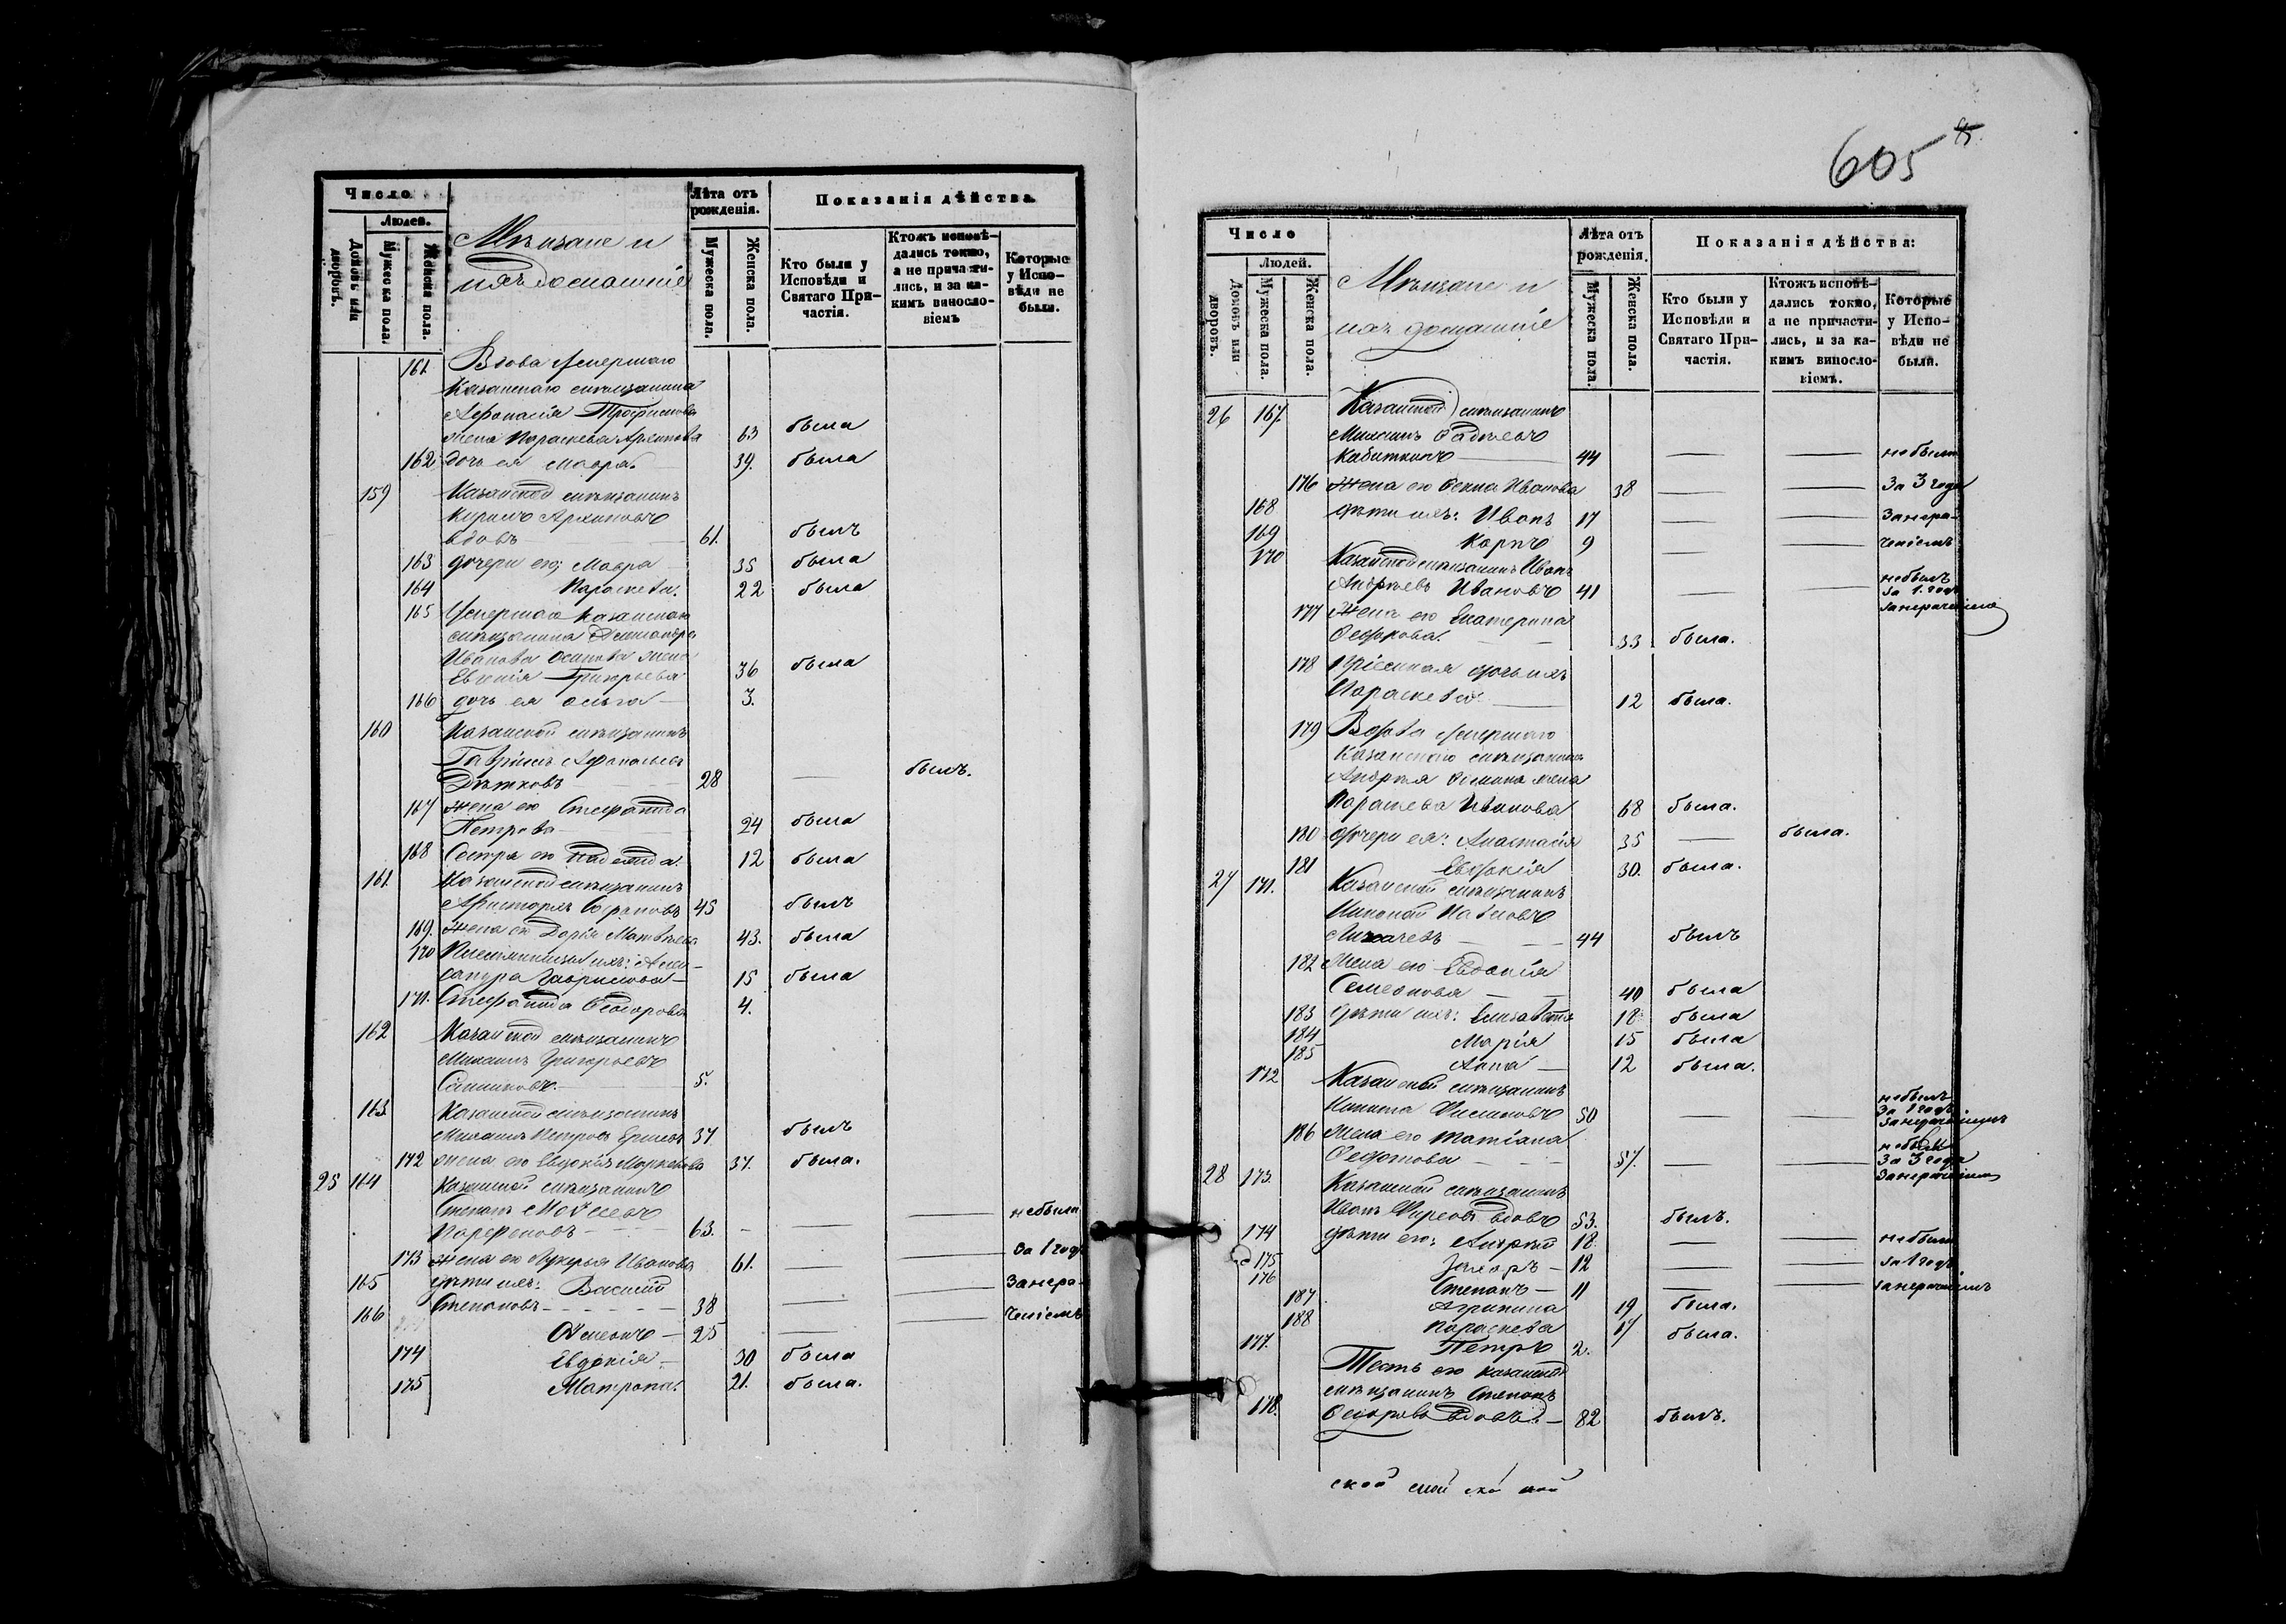 Число
Людей.
Домовъ или дворовъ.
Мужеска пола.
Женска пола.
Мѣщане и
ихъ домашніе
Лѣта отъ рожденія.
Мужеска пола.
Женска пола.
Показанія дѣйства
Кто были у Исповѣди и Святаго Причастія.
Ктожъ исповѣдались токмо, а не причастились, и за какимъ винословіемъ
Которые у Исповѣди не были.
161 Вдова умершаго
Казанскаго мѣщанина
Афанасія Трофимова
жена Параскева Архипова 63 была
162 дочь ея Мавра 39. была
159 Казанской мѣщанинъ
Кирилъ Архиповъ
вдовъ 61. былъ
163 дочери его; Мавра 35 была
164 Параскева. 22 была
165 Умершаго Казанскаго
мѣщанина Александра
Иванова Осипова жена
Евгенія Григорьева 36 была
166 дочь ея Ольга 3.
160 Казанской мѣщанинъ
Гавріилъ Афанасьевъ
28 — былъ.
167 жена его Стефанида
Петрова 24 была
168 Сестра его Надежда 12 была
161. Казанской мѣщанинъ
45 былъ
169. жена его Дарія Матвѣева 43. была
170 Племянницы ихъ: Алек-
сандра Гаврилова 15 была
171. Стефанида Ѳеодорова 4.
162 Казанской мѣщанинъ
Михаилъ Григорьевъ
5.
163 Казанской мѣщанинъ
Михаилъ Петровъ 37 былъ
172 жена его Евдокія 37. была.
25 164 Казанской мѣщанинъ
Степанъ Моѵсеевъ
Парфеновъ 63. — — небыли
173 жена его Лукерья Иванова 61. — — за 1 годъ
165 дѣти ихъ: Василій
Степановъ 38 — — За нера-
166 25 — — ченіемъ
174 Евдокія 30 была
175 Матрона 21. была.
605
Число
Людей.
Домовъ или дворовъ.
Мужеска пола.
Женска пола.
Мѣщане и
ихъ домашніе
Лѣта отъ рожденія.
Мужеска пола.
Женска пола.
Показанія дѣйства:
Кто были у Исповѣди и Святаго Причастія.
Ктожъ исповѣдались токмо, а не причастились, и за какимъ винословіемъ.
Которые у Исповѣди не были.
26 167. Казанской мѣщанинъ
Михаилъ
44 — — небыли
176 жена его Иванова 38 — — За 3 года
168 дѣти ихъ: Иванъ 17 — — За нера-
169 Карпъ 9 — — ченіемъ
170 Казанской мѣщанинъ Иванъ
Андреевъ Ивановъ 41 — — небылъ за 1. годъ
177 жена его Екатерина
33 была.
178 Пріемная дочь ихъ
Параскева 12 была.
179 Вдова умершаго
Казанскаго мѣщанина
Андрея жена
Параскева Иванова 68 была.
180 дочери ея: Анастасія 35 — была.
181 Евдокія 30. была.
27 171. Казанской мѣщанинъ
Лихачевъ 44 былъ
182 Жена его Евдокія
Семенова 40 была
183 дѣти ихъ: Елизавета 18 была
184 Марія 15 была
185 Анна 12 была.
172 Казанской мѣщанинъ
Никита 50 — — небылъ За 1 годъ
186 жена его Татіана
Ѳедотова 57. — — За 3 года
28 173. Казанской мѣщанинъ
Иванъ вдовъ 53. былъ.
174 дѣти его: Андрей 18 — — небыли
175 Захаръ 12 — — за 1 годъ
176 Степанъ 11 — —
187 Агрипина 19 была.
188 Параскева 17 была.
177. Петръ 2.
Тесть его казанской
мѣщанинъ Степанъ
178. Ѳедоровъ вдовъ. 82 былъ.
ской